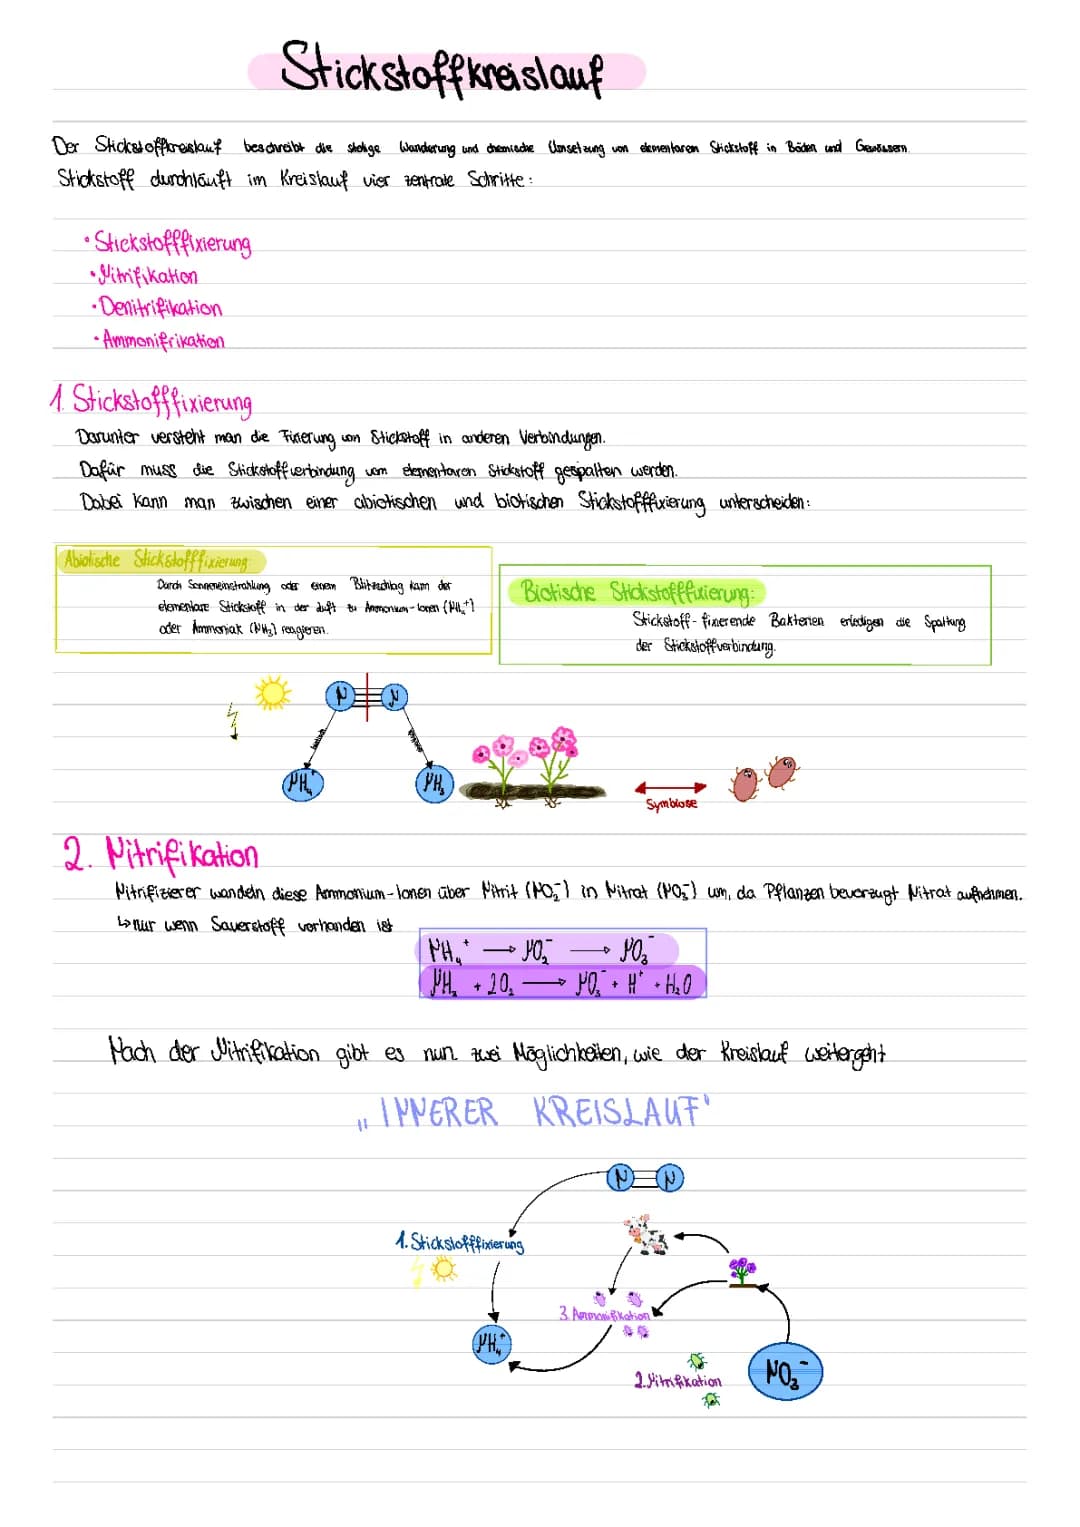 Stickstoffkreislauf
Der Stickstoffkreislauf beschreibt die stetige Wanderung und chemische Umsetzung von elementarem Stickstoff in Böden und Gewässern.
Stickstoff durchläuft im Kreislauf vier zentrale Schritte:
• Stickstofffixierung
• Nitrifikation
• Denitrifikation
• Ammonifrikation
1. Stickstofffixierung
Darunter versteht man die Fixierung von Stickstoff in anderen Verbindungen.
Dafür muss die Stickstoffverbindung vom elementaren Stickstoff gespalten werden.
Dabei kann man zwischen einer abiotischen und biotischen Stickstofffixierung unterscheiden:
Abiotische Stickstofffixierung
Durch Sonneneinstrahlung oder einem Blitzschlag kann der
elementare Stickstoff in der Luft zu Ammonium-Ionen (NH₄⁺)
oder Ammoniak (NH₃) reagieren.
Biotische Stickstofffixierung:
Stickstoff-fixierende Bakterien erledigen die Spaltung
der Stickstoffverbindung.
N N
NH₄⁺ NH₃
Symbiose
2. Nitrifikation
Nitrifizierer wandeln diese Ammonium-Ionen über Nitrit (NO₂⁻) in Nitrat (NO₃⁻) um, da Pflanzen bevorzugt Nitrat aufnehmen.
↳ nur wenn Sauerstoff vorhanden ist
NH₄⁺ → NO₂⁻ → NO₃⁻
NH₃ + 2O₂ → NO₃⁻ + H⁺ + H₂O
Nach der Nitrifikation gibt es nun zwei Möglichkeiten, wie der Kreislauf weitergeht
„INNERER KREISLAUF"
N N
1. Stickstofffixierung
3. Ammonifikation
NH₄⁺
2. Nitrifikation
NO₃⁻